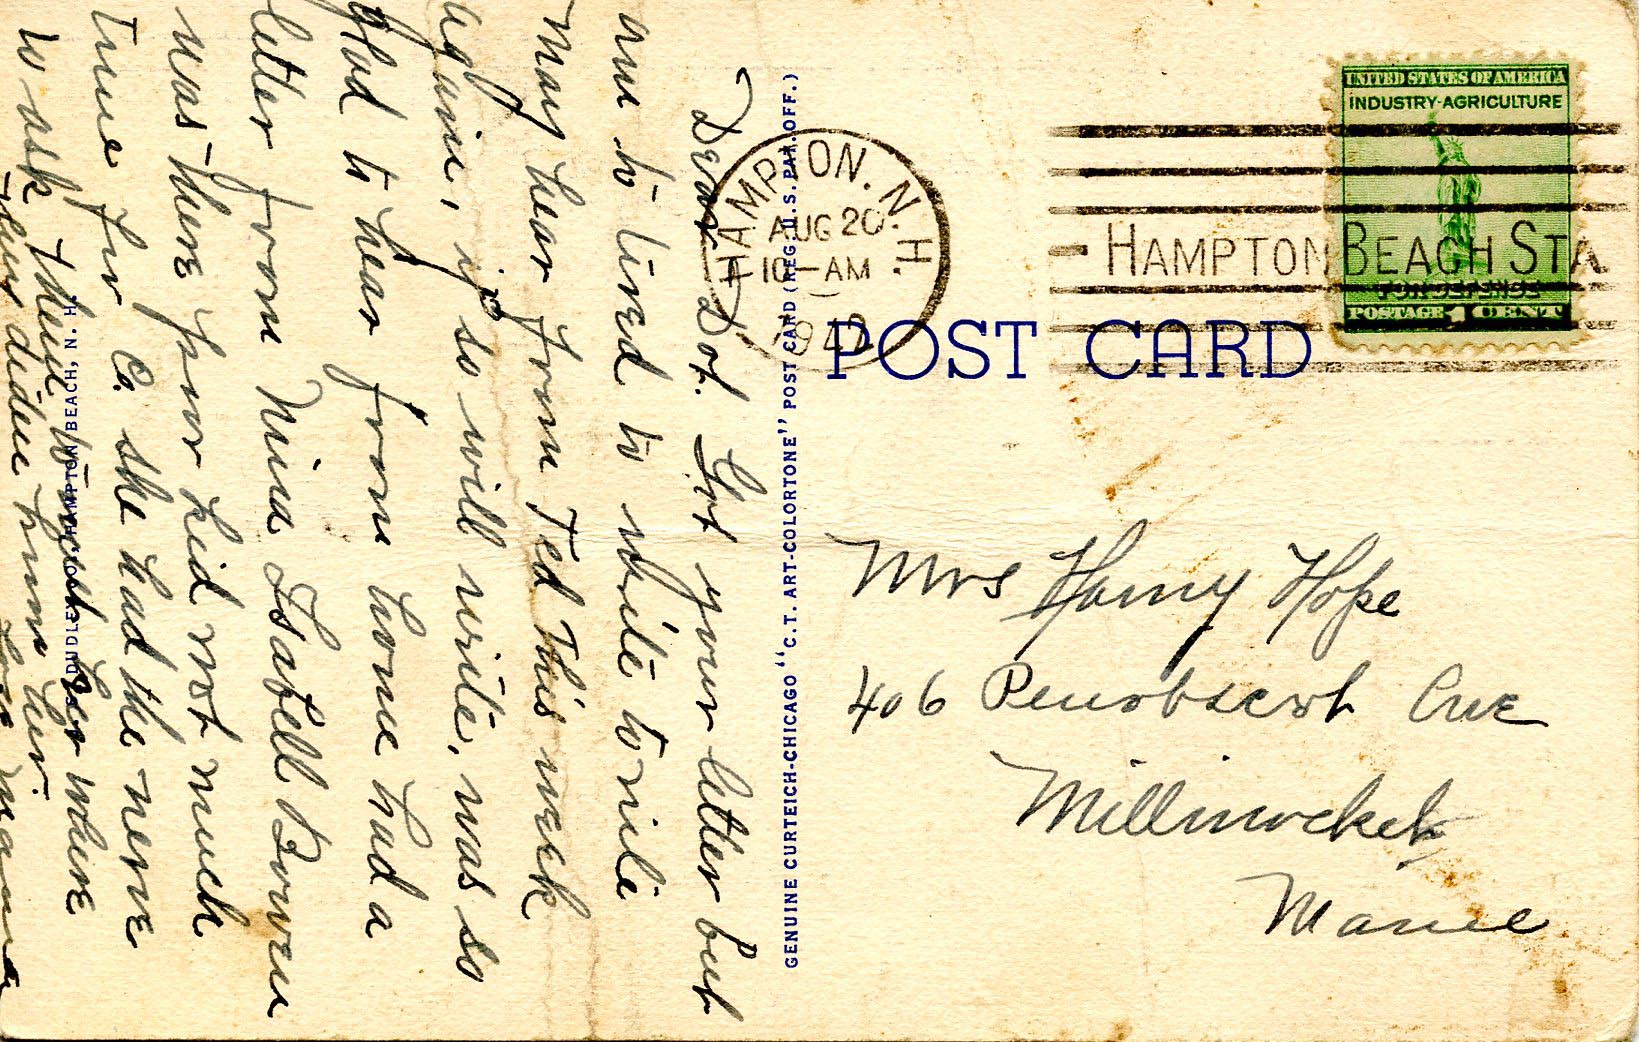 Dear Dot. Got your letter but
am to tired to write to nite
may hear from Ted This week
again, if so will write, was so
glad to hear from home had a
letter from Nina Isabell Bowen
was there four hid not much
time for Co. she had the nerve
to ask them to meet her where
they didn't know her.
Love Mama
DUDLEY HAMPTON BEACH, N. H.
GENUINE CURTEICH-CHICAGO "C. T. ART-COLORTONE" POST CARD (REG. U.S. PAT. OFF.)
HAMPTON. N.H.
AUG 20
10-AM
1942
HAMPTON BEACH STA.
UNITED STATES OF AMERICA
INDUSTRY-AGRICULTURE
FOR DEFENSE
POSTAGE 1 CENT
POST CARD
Mrs Harry Hope
406 Penobscot Ave
Millinocket
Maine